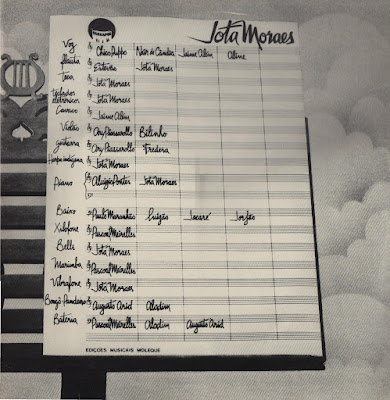 Jota Moraes
Voz Chico Puppo Nair de Candia Jaime Alem Aline
flauta Esteves Jota Moraes
Jota Moraes
Teclados eletrônicos Jota Moraes
Jaime Alem
Violão Ary Piassarollo Betinho
guitarra Ary Piassarollo Fredera
Harpa indígena Jota Moraes
piano Aluizio Pontes Jota Moraes
Baixo Paulo Maranhão Luizão Jacaré Jorjão
Xilofone Pascoal Meirelles
Bells Jota Moraes
Marimba Pascoal Meirelles
Vibrafone Jota Moraes
Bongô-Pandeiro Augusto Arid Aladim
Bateria Pascoal Meirelles Aladim Augusto Arid
EDIÇÕES MUSICAIS MOLEQUE